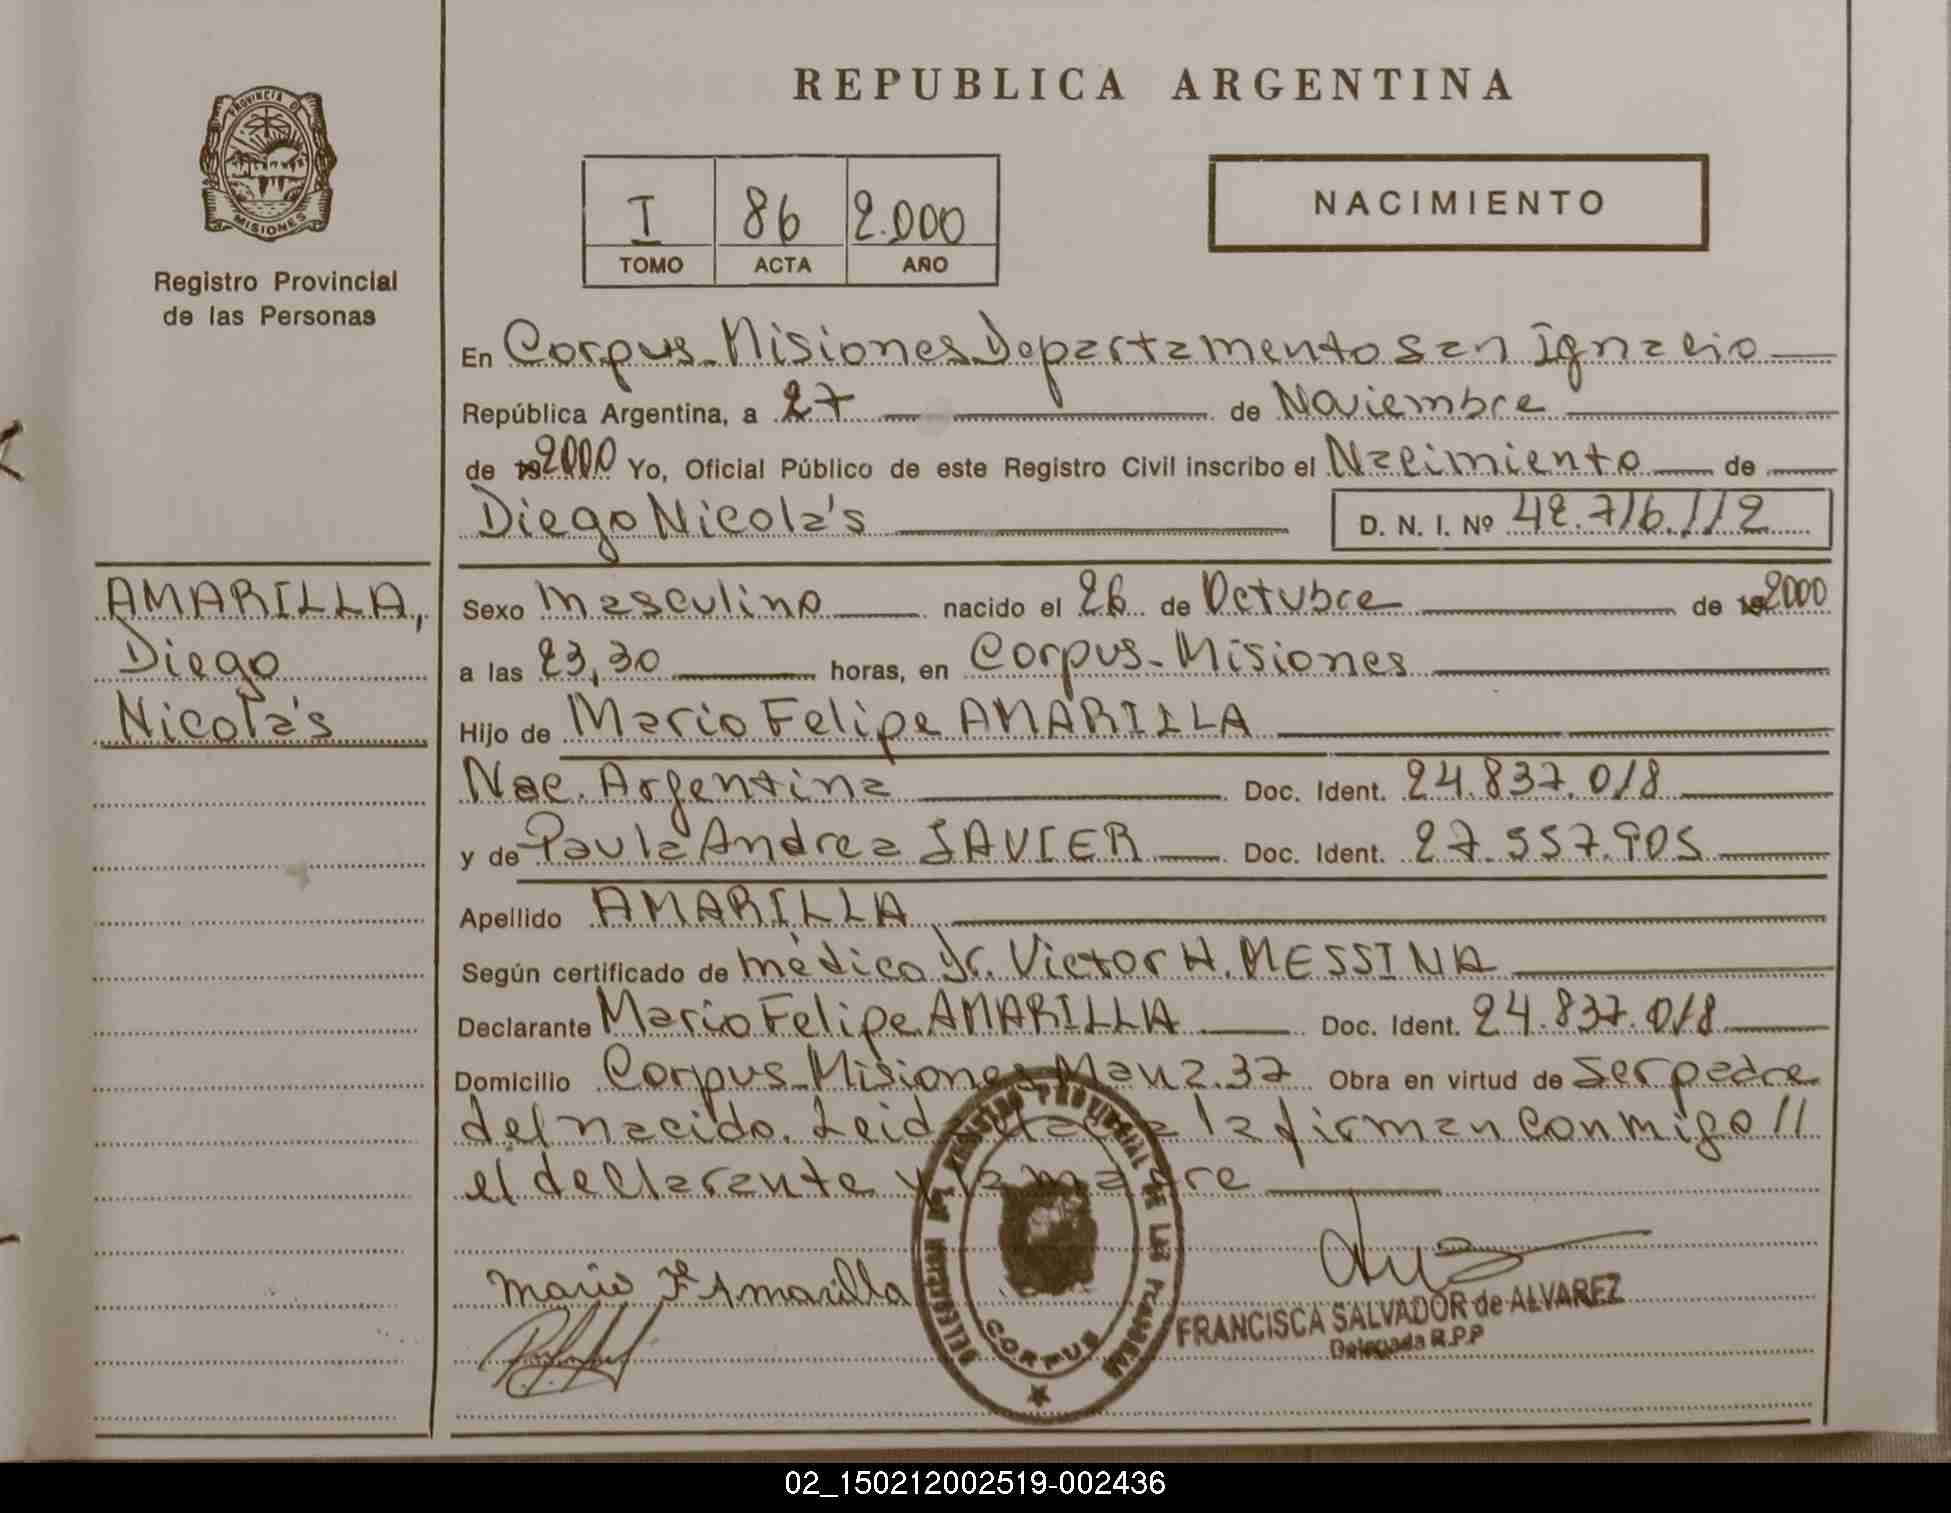 REPUBLICA ARGENTINA
PROVINCIA DE
MISIONES
Registro Provincial
de las Personas
I 86 2.000
TOMO ACTA AÑO
NACIMIENTO
En Corpus-Misiones Departamento San Ignacio
República Argentina, a 27 de Noviembre
de 19 2000 Yo, Oficial Público de este Registro Civil inscribo el Nacimiento de
Diego Nicolás D. N. I. Nº 42.716.112
AMARILLA,
Diego
Nicolás
Sexo masculino nacido el 26 de Octubre de 19 2000
a las 23,30 horas, en Corpus-Misiones
Hijo de Mario Felipe AMARILLA
Nac. Argentina Doc. Ident. 24.837.018
y de Paula Andrea JAVIER Doc. Ident. 27.557.905
Apellido AMARILLA
Según certificado de médico Dr. Victor H. MESSINA
Declarante Mario Felipe AMARILLA Doc. Ident. 24.837.018
Domicilio Corpus-Misiones Manz.37 Obra en virtud de ser padre
del nacido. Leida el acta la firman conmigo //
el declarante y la madre
Mario F. Amarilla
REGISTRO PROVINCIAL DE LAS PERSONAS
CORPUS
FRANCISCA SALVADOR de ALVAREZ
Delegada R.P.P
02_150212002519-002436